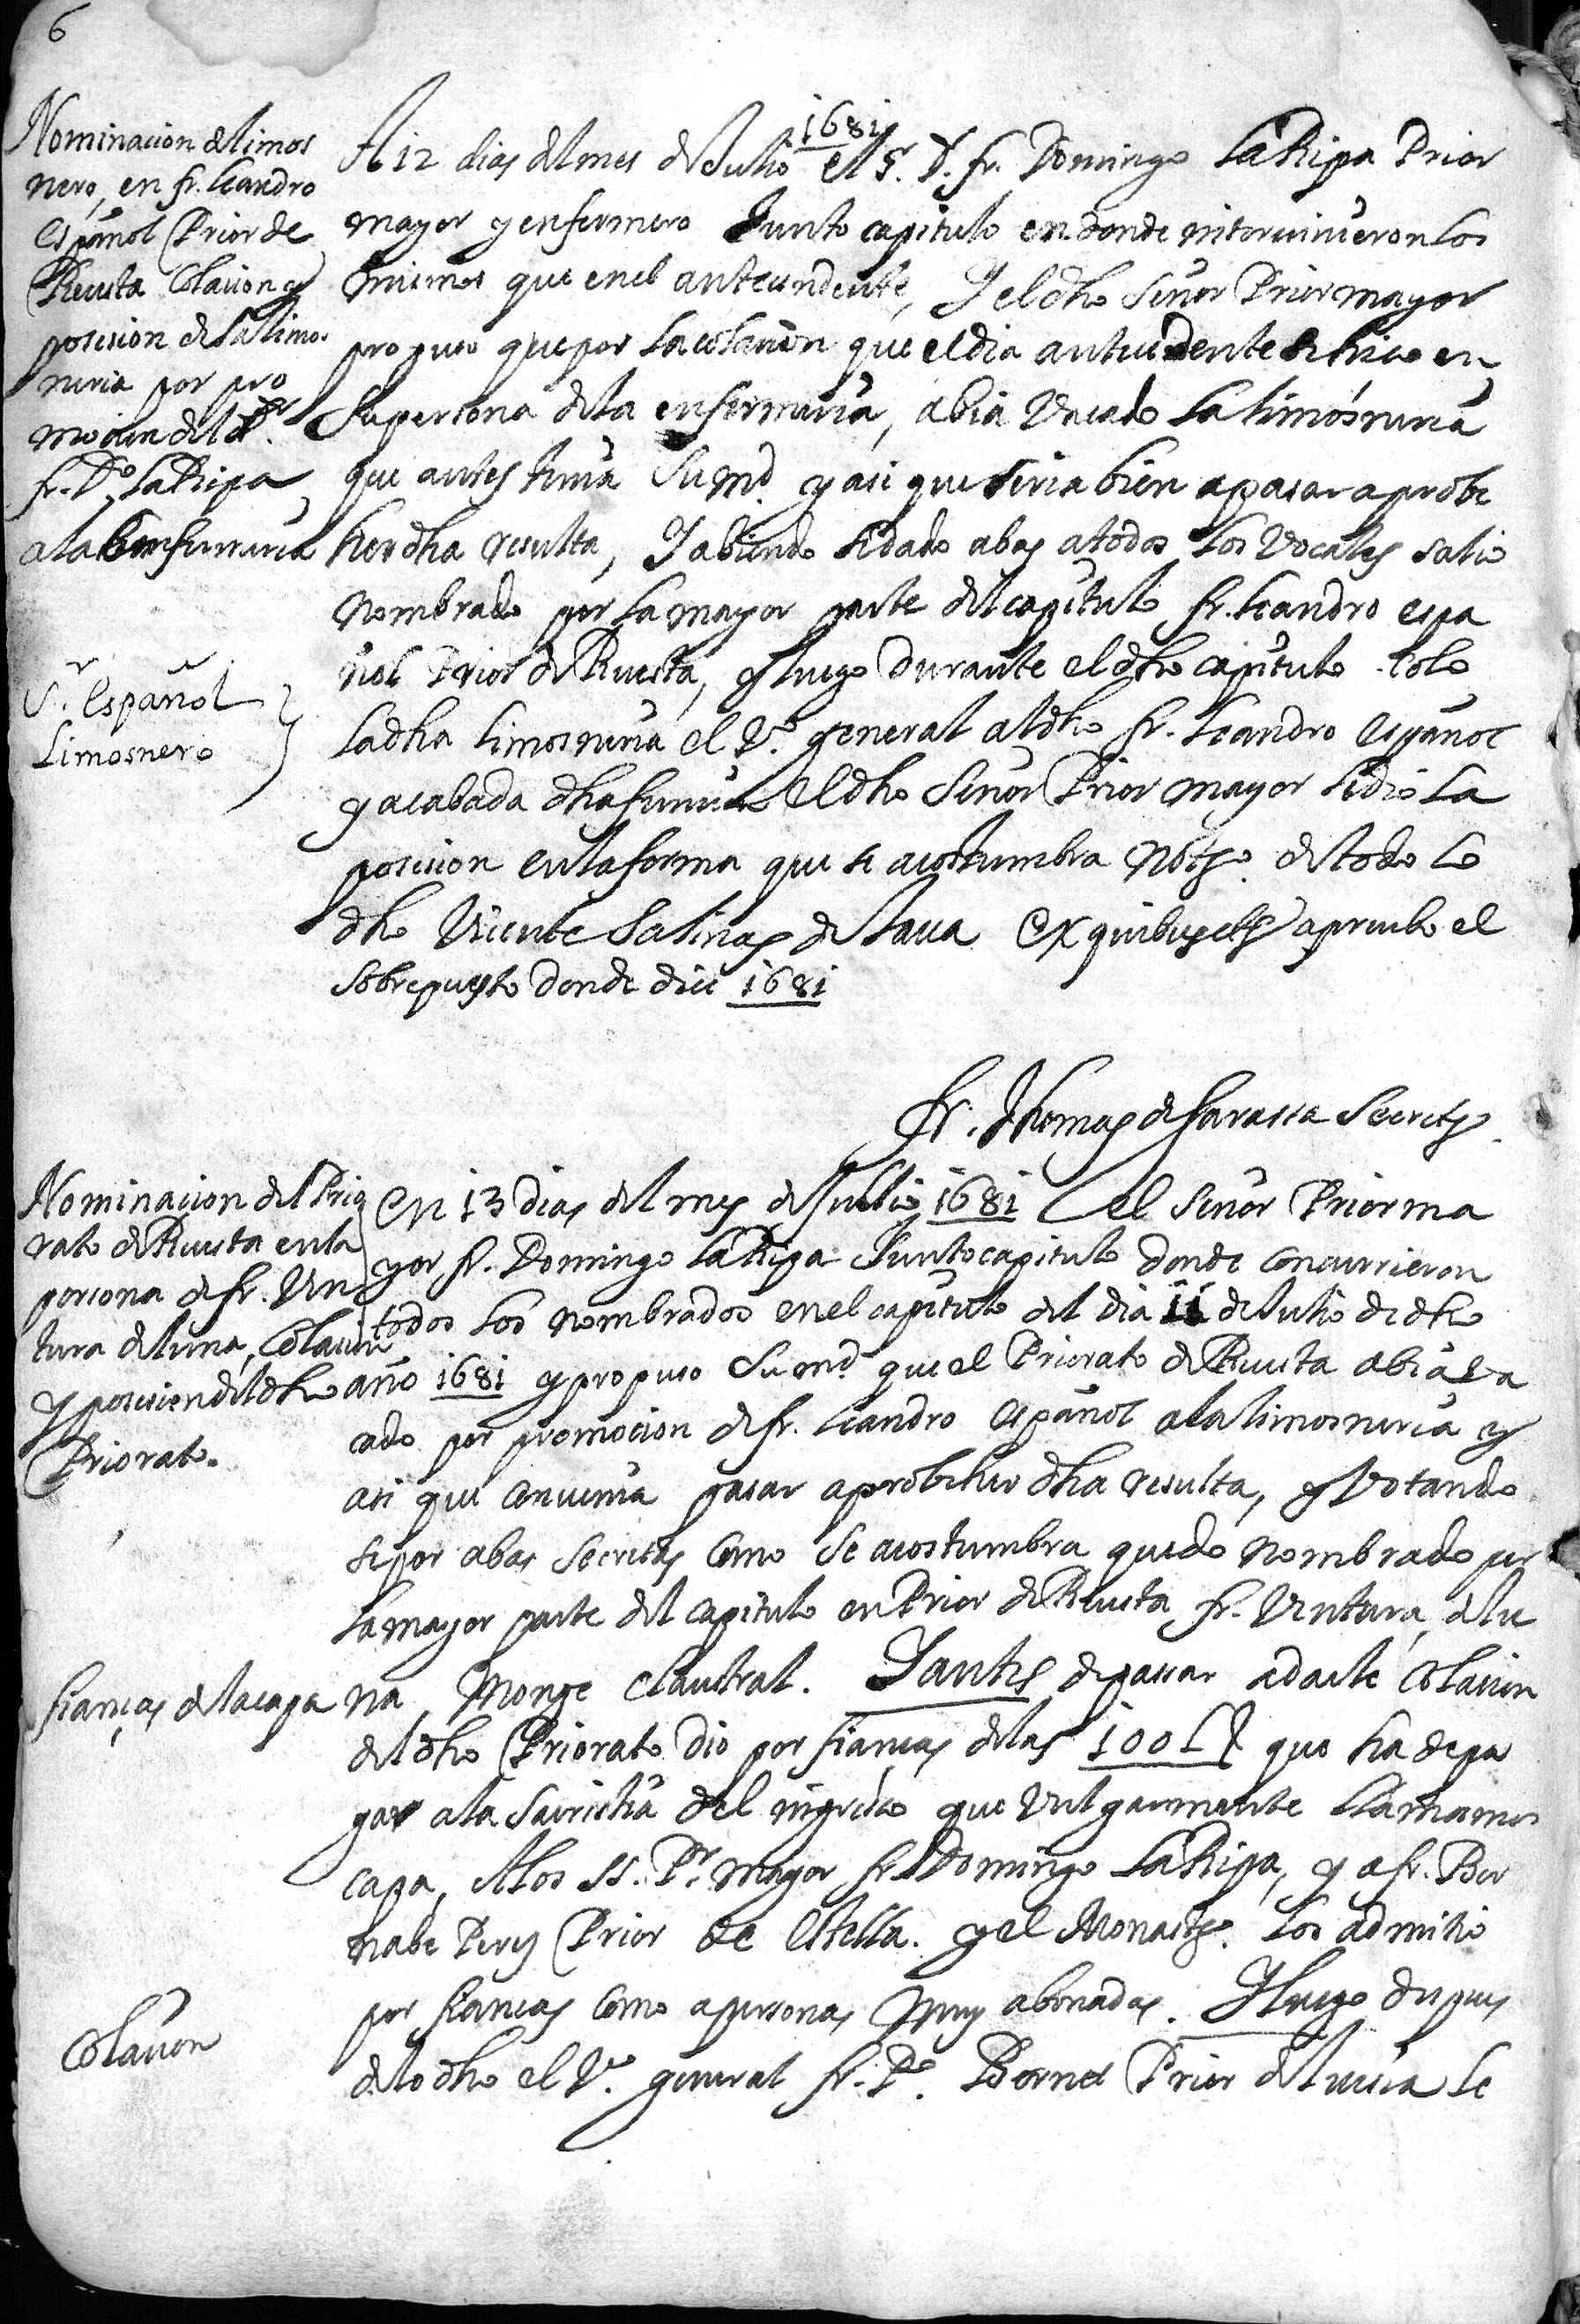 6
Nominacion de limos
nero, en fr. Leandro
español Prior de
Ruesta Colacion y
posesion de la limos
neria por pro
mocion del Pr.
fr. Do. La Ripa
a la enfermeria
A 12 dias del mes de Julio 1681 el Sr. D. fr. Domingo La Ripa Prior
mayor y enfermero Junto capitulo en donde intervinieron los
mismos que en el antecendente, Y el dho Señor Prior mayor
propuso que por la colacion que el dia antecedente se hico en
Su persona de la enfermeria, abia Vacado la limosneria
que antes tenia Su md. y asi que seria bien a pasar a probe
her dha resulta, Y abiendo se dado abas a todos los Vocales salio
nombrado por la mayor parte del capitulo fr. Leandro espa
ñol Prior de Ruesta, y luego durante el dho capitulo colo
la dha limosneria el Vo. general al dho fr. Leandro español
y acabada dha funcion el dho Señor Prior mayor le dio la
posesion en la forma que se acostumbra Notho. de todo lo
dho Vicente Salinas de Jaca Ex quibus etc apruebo el
Sobrepuesto donde dice 1681
Sr. Español
Limosnero
fr. Thomas de Sarassa Secretho.
Nominacion del Prio
rato de Ruesta en la
persona de fr. Ven
tura de luna, Colacion
y posesion del dho
Priorato.
En 13 dias del mes de Julio 1681 el Señor Prior ma
yor fr. Domingo La Ripa Junto capitulo donde concurrieron
todos los nombrados en el capitulo del dia 11 de Julio de dho
año 1681 y propuso Su md. que el Priorato de Ruesta abia va
cado por promocion de fr. Leandro español a la limosneria y
asi que convenia pasar a probeher dha resulta, y Votando
se por abas secretas como se acostumbra quedo nombrado por
la mayor parte del capitulo en Prior de Ruesta fr. Ventura de lu
na, Monge claustral. Y antes de passar a darle Colacion
del dho Priorato dio por fianças de las 100 L que ha de pa
gar a la Sacristia del ingreso que Vulgarmente llamamos
capa, A los SS. Pr. mayor fr. Domingo La Ripa, y a fr. Ber
nabe Perez Prior de estella. y el Monastho. los admitio
por fianças como a personas muy abonadas. Y luego despues
de lo dho el Vo. general fr. Po. Bernet Prior de luesia le
fianças de la capa
Colacion